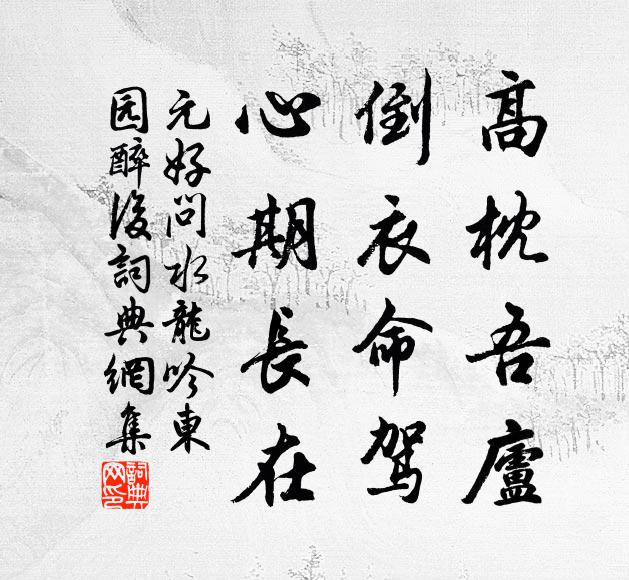 高枕吾廬
倒衣命駕
心期長在
元好问水龍吟東
园醉後詞典網集
詞典
网印